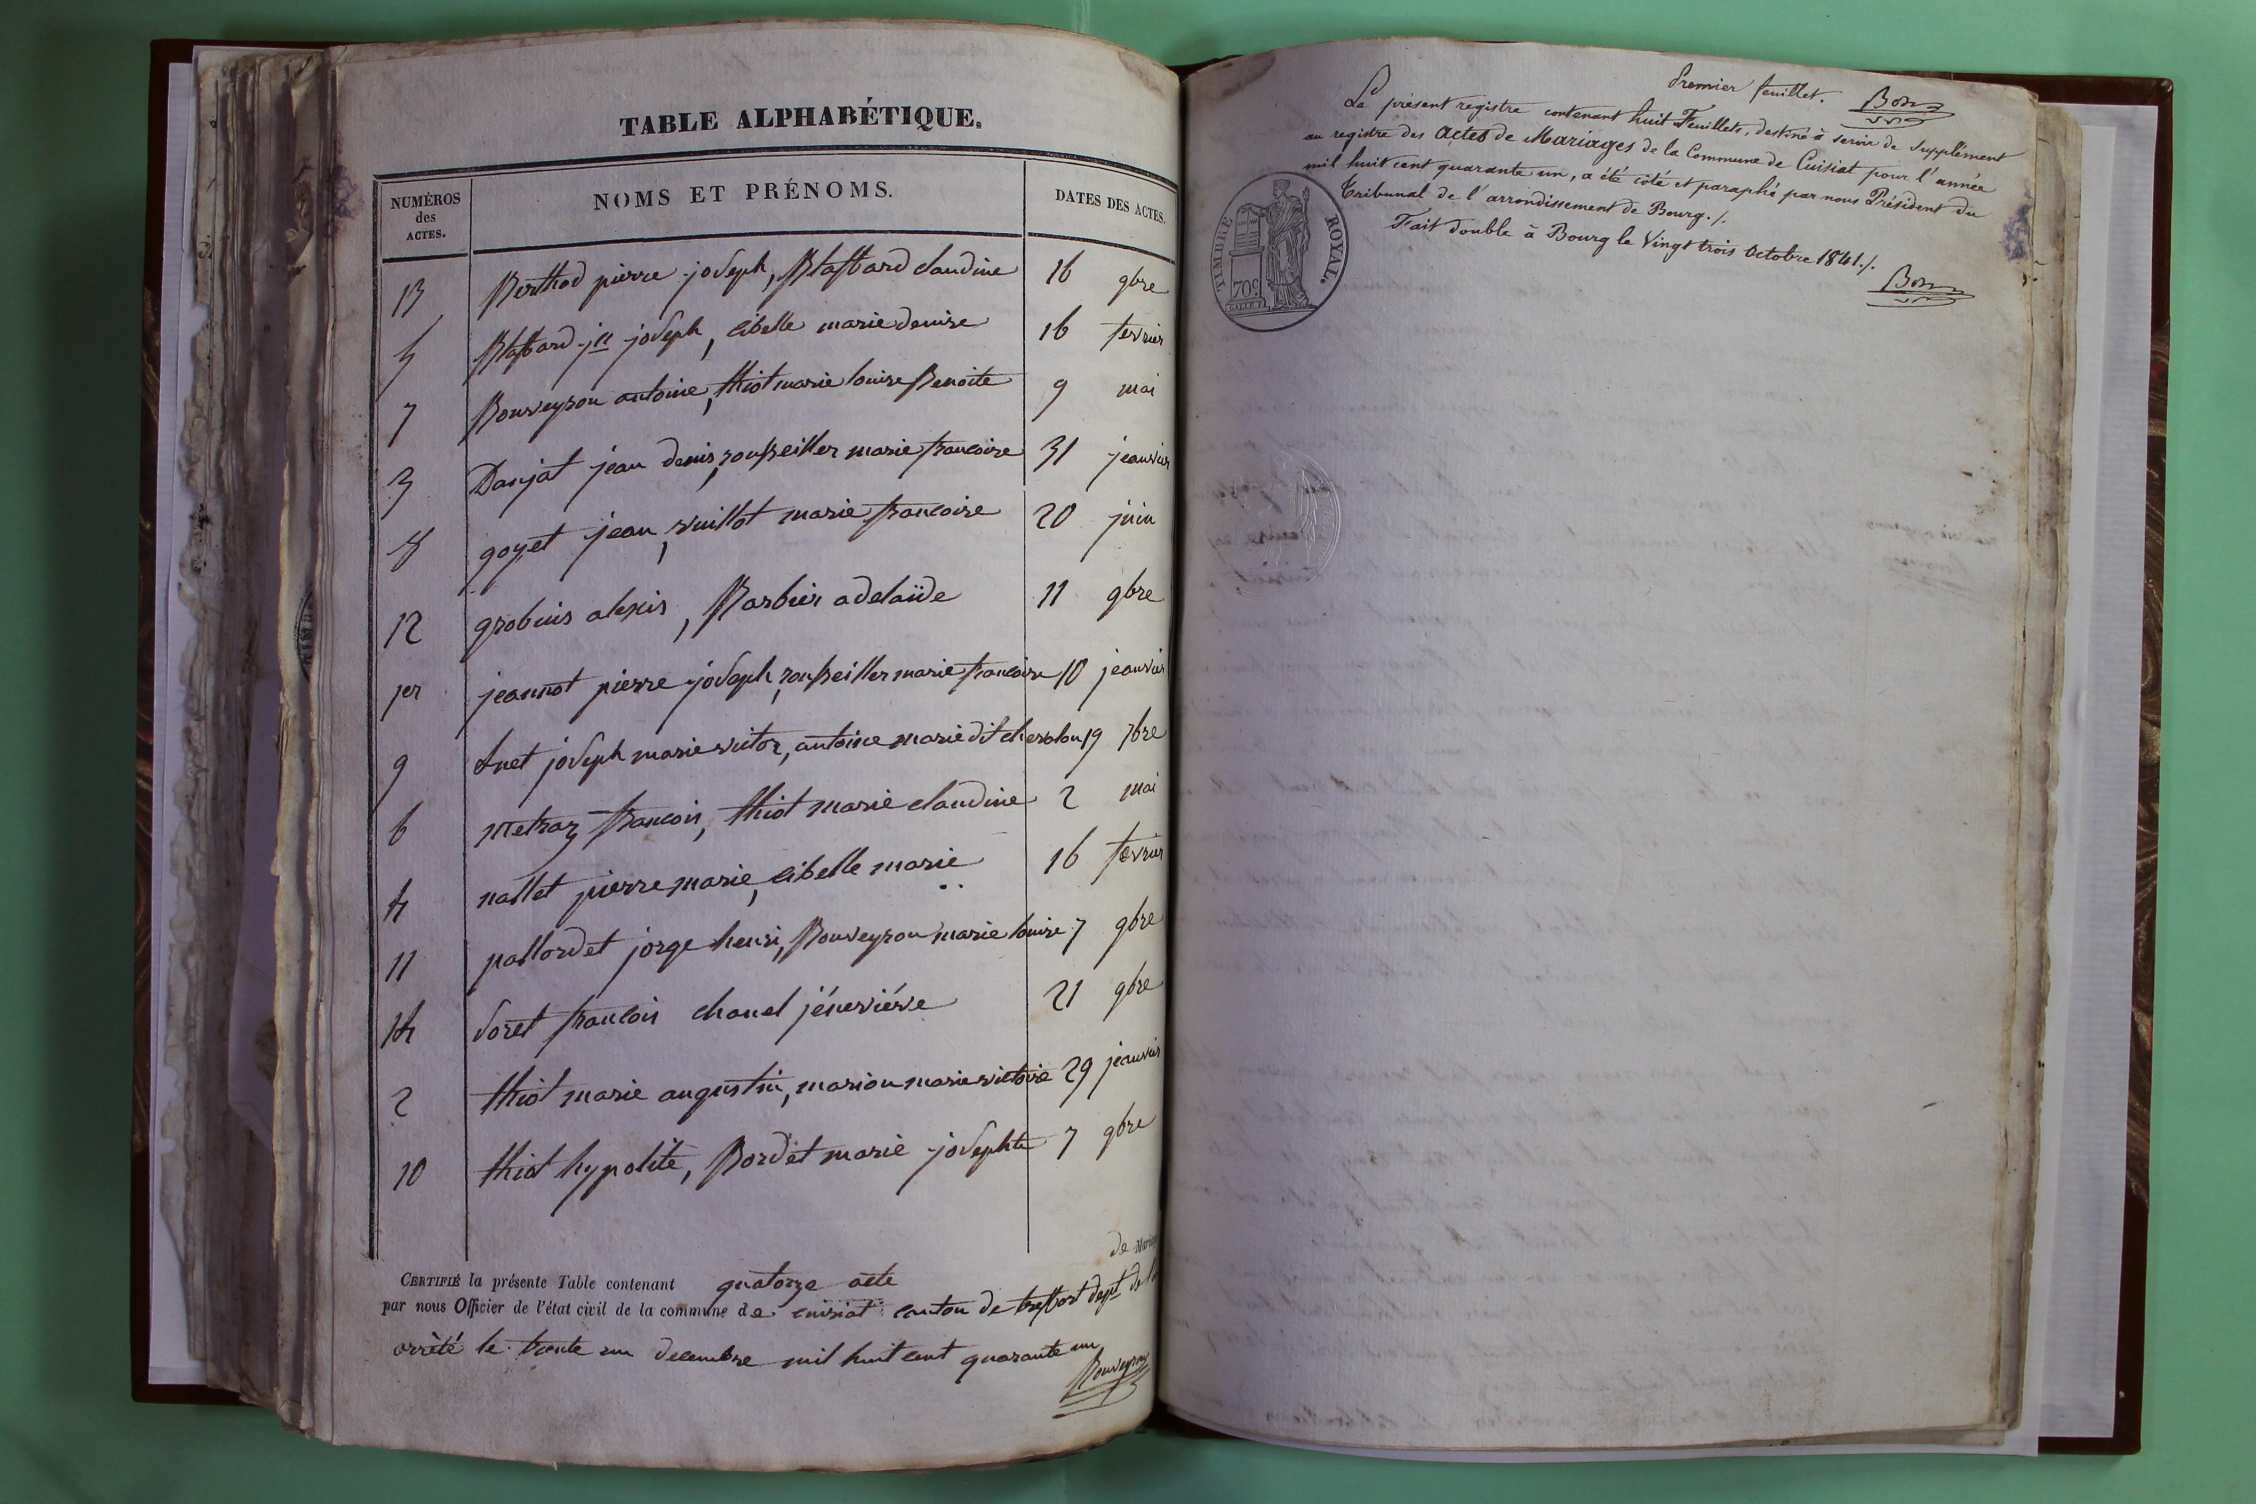 TABLE ALPHABÉTIQUE.
NUMÉROS des ACTES. NOMS ET PRÉNOMS. DATES DES ACTES.
13 Berthod pierre joseph, Blassard claudine 16 9bre
5 Blassard jn joseph, cibelle marie denise 16 fevrier
7 Bouveyron antoine, thiot marie louise Benoite 9 mai
3 Danjat jean denis, rousseiller marie francoise 31 jeanvier
8 goyet jean, vuillot marie francoise 20 juin
12 grobuis alexis, Barbier adelaïde 11 9bre
1er jeannot pierre joseph, rousseiller marie francoise 10 jeanvier
9 joseph marie victor, antoine marie dit chevolon 19 7bre
6 metraz francois, thiot marie claudine 2 mai
4 nallet pierre marie, cibelle marie 16 fevrier
11 pallordet jorge henri, Bouveyron marie louise 7 9bre
14 soret francois chanel jéneviéve 21 9bre
2 thiot marie augustin, marion marie victoire 29 jeanvier
10 thiot hypolite, Bordet marie josephte 7 9bre
CERTIFIÉ la présente Table contenant quatorze acte de
par nous Officier de l'état civil de la commune de cuisiat canton de treffort dept de
arrèté le trente un decembre mil huit cent quarante un
Bouveyron
Premier feuillet.
Le présent registre contenant huit Feuillets, destiné à servir de Supplément
au registre des Actes de Mariages de la Commune de Cuisiat pour l'année
mil huit cent quarante un, a été coté et paraphé par nous Président du
Tribunal de l'arrondissement de Bourg./.
Fait double à Bourg le Vingt trois Octobre 1841./.
TIMBRE ROYAL.
70c